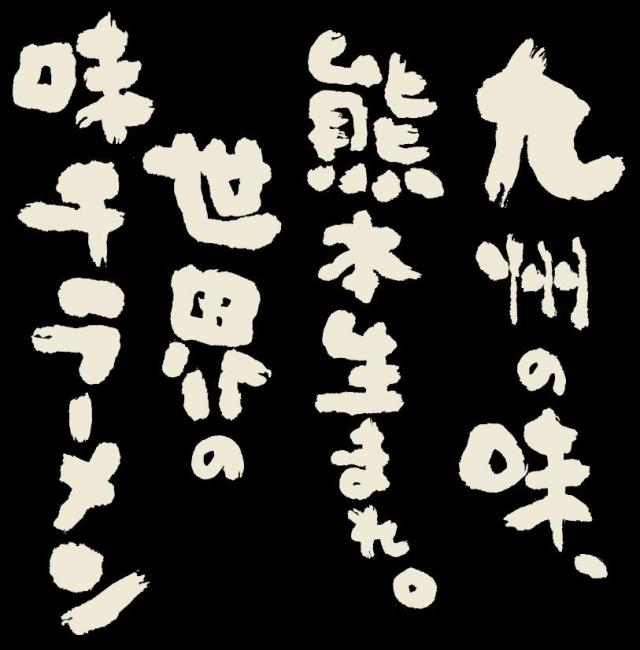 九州の味、
熊本生まれ。
世界の
味千ラーメン